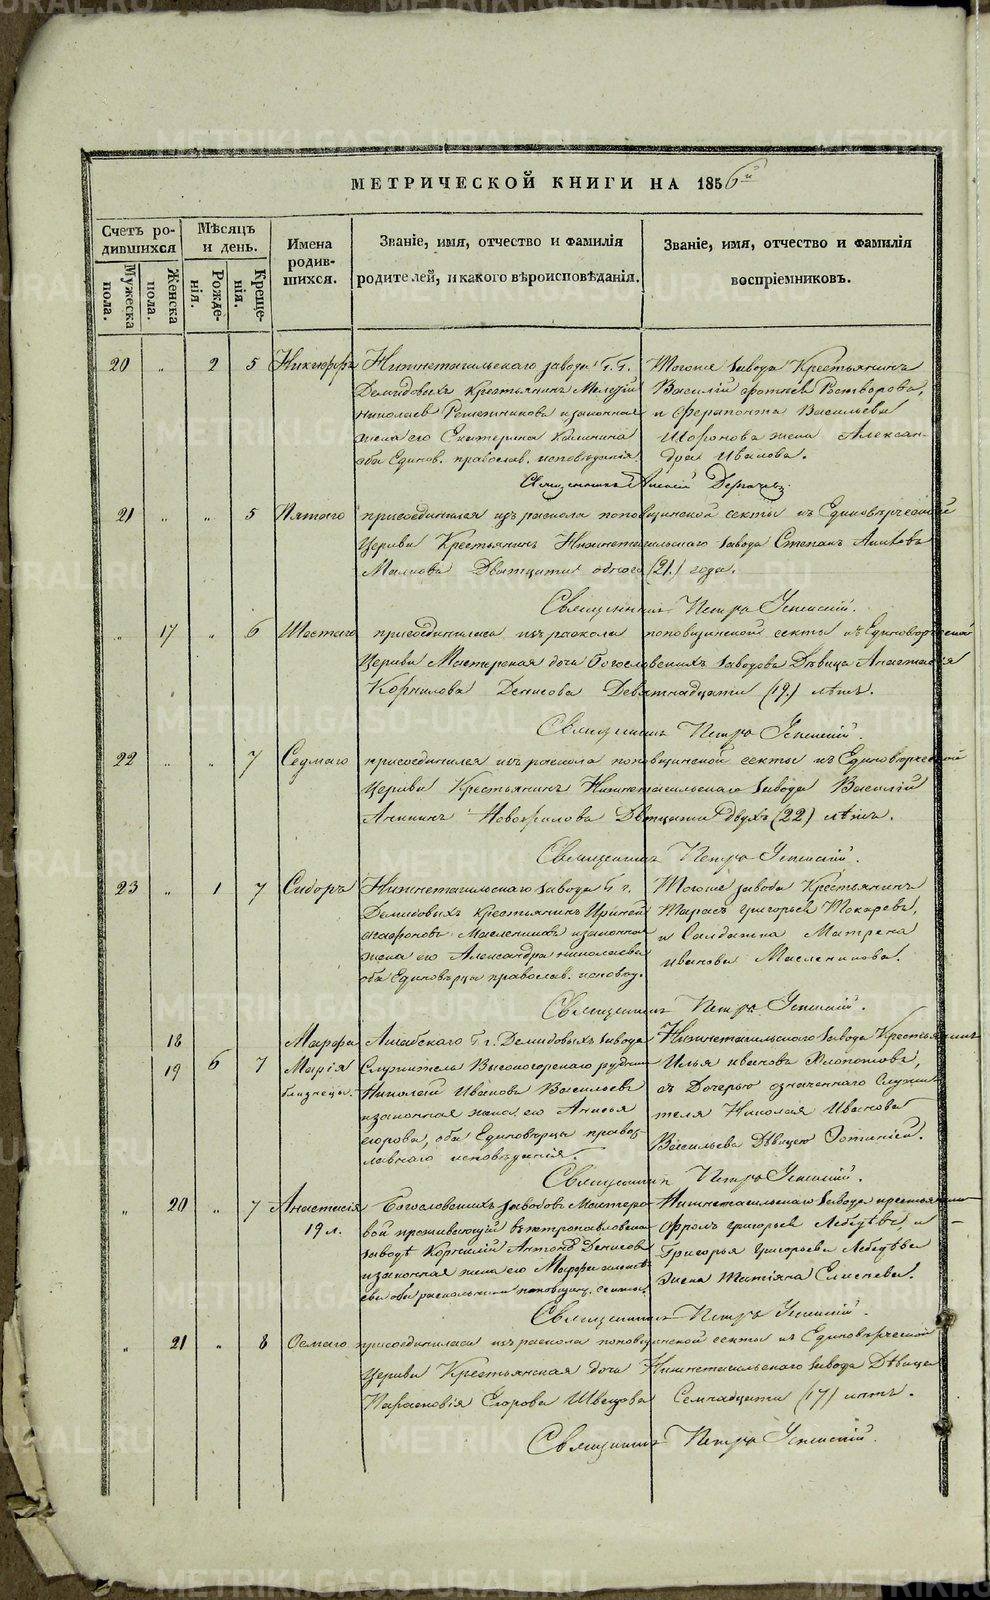 МЕТРИЧЕСКОЙ КНИГИ НА 1856й
Счетъ родившихся
Мужеска пола.
Женска пола.
Мѣсяцъ и день.
Рожденія.
Крещенія.
Имена родившихся.
Званіе, имя, отчество и фамилія родителей, и какого вѣроисповѣданія.
Званіе, имя, отчество и фамилія воспріемниковъ.
20 „ 2 5 Никифоръ
Нижнетагильскаго завода Г. Г.
Демидовыхъ крестьянинъ Мелетій
Николаевъ Решетниковъ и законная
жена его Екатерина Калинина
оба Единов. православ. исповѣданія
Тогоже завода Крестьянинъ
Василій
и Ферапонта Васильева
жена Александра Иванова.
Священникъ
21 „ „ 5 Пятаго присоединился изъ раскола поповщинской секты къ Единовѣрческой
Церкви Крестьянинъ Нижнетагильскаго завода Степанъ
Дватцати одного (21.) года.
Священникъ Петръ Успенскій.
„ 17 „ 6 Шестаго присоединилась изъ раскола поповщинской секты къ Единоверческой
Церкви Мастерская дочь Богословскихъ заводовъ Дѣвица Анастасія
Корнилова Денисова Девятнадцати (19.) лѣтъ.
Священникъ Петръ Успенскій.
22 „ „ 7 Седмаго присоединился изъ раскола поповщинской секты къ Единовѣрческой
Церкви Крестьянинъ Нижнетагильскаго завода Василій
Дватцати двухъ (22) лѣтъ.
Священникъ Петръ Успенскій.
23 „ 1 7 Сидоръ
Нижнетагильскаго завода Г. г.
Демидовыхъ крестьянинъ Ириней
Масленниковъ и законная
жена его Александра Николаева
оба Единовѣрцы православ. исповѣд.
Тогоже завода Крестьянинъ
Тарасъ Григорьевъ Токаревъ,
и Салдатка Матрена
Иванова Масленикова.
Священникъ Петръ Успенскій.
18 Марѳа
19 6 7 Марія
близнецы.
Г. г. Демидовыхъ завода
Служитель Высокогорскаго рудника
Николай Ивановъ Васильевъ
и законная жена его Анисья
Егорова, оба Единовѣрцы православнаго исповѣданія.
Нижнетагильскаго завода Крестьянинъ
Илья Ивановъ
съ Дочерью означеннаго Служителя Николая Иванова
Васильева Дѣвицею
Священникъ Петръ Успенскій.
„ 20 „ 7 Анастасія
19 л.
Богословскихъ заводовъ Мастеровой проживающій въ Петропавловскомъ
заводѣ Корнилій Антоновъ Денисовъ
и законная жена его Марѳа
оба раскольники поповщин. секты.
Нижнетагильскаго завода крестьянинъ
Фролъ Григорьевъ Лебедевъ, и
Григорья Григорьева Лебедева
жена Татіяна Елисеева.
Священникъ Петръ Успенскій.
„ 21 „ 8 Осмаго присоединилась изъ раскола поповщинской секты къ Единовѣрческой
Церкви Крестьянская дочь Нижнетагильскаго завода Дѣвица
Парасковія Егорова Швецова Семнадцати (17) лѣтъ.
Священникъ Петръ Успенскій.
METRIKI.GASO-URAL.RU